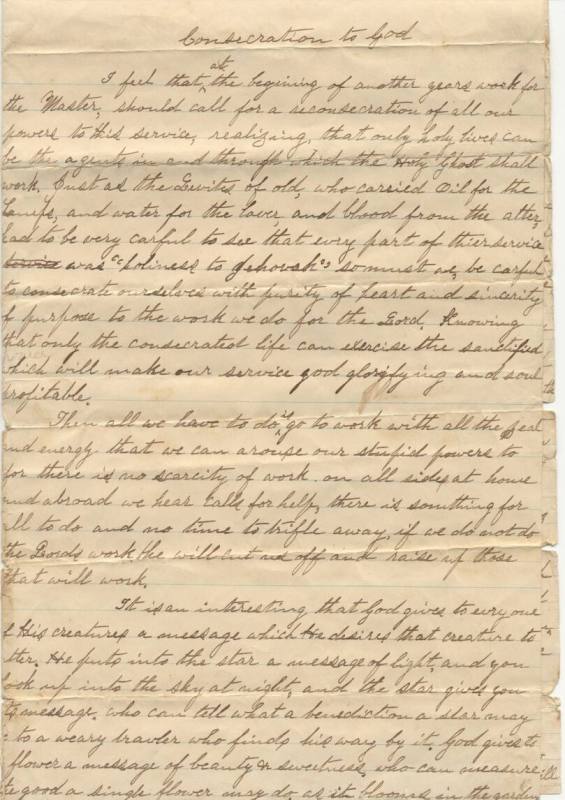 Consecration to God
I feel that at the begining of another years work for
the Master, should call for a reconsecration of all our
powers to His service, realizing, that only holy lives can
be the agents in and through which the Holy Ghost shall
work. Just as the Levites of old, who carried Oil for the
Lamps, and water for the laver, and blood from the alter,
had to be very carful to see that evry part of thier service
was "holiness to Jehovah" so must we, be carful
to consecrate ourselves with purity of heart and sincirity
of purpose to the work we do for the Lord. Knowing
that only the consecrated life can exercise the sanctified
which will make our service god glorifying and soul
profitable.
Then all we have to do is go to work with all the zeal
and energy that we can arouse our stupid powers to
for there is no scarcity of work on all sides, at home
and abroad we hear calls for help, there is somthing for
all to do and no time to trifle away, if we do not do
the Lords work, he will cut us off and raise up those
that will work.
It is an interesting, that God gives to evry one
of His creatures a message which He desires that creature to
utter. He puts into the star a message of light, and you
look up into the sky at night, and the star gives you
its message. who can tell what a benediction a star may
be to a weary travler who finds his way by it. God gives to
a flower a message of beauty & sweetness, who can measure
the good a single flower may do, as it blooms in the garden